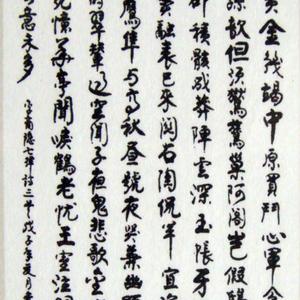 黃金幾竭中原買鬥心軍令
孫歆但須鸑鷟巢阿閣豈假鴟
積骸成莽陣雲深玉帳牙
竇融表已來關右陶侃軍宜
鷹隼与高秋晝號夜哭兼幽顯
時翠輦過空聞子夜鬼悲歌金
死憶華亭聞唳鶴老憂王室泣銅
意未多 李商隱七律詩三首戊子年夏月